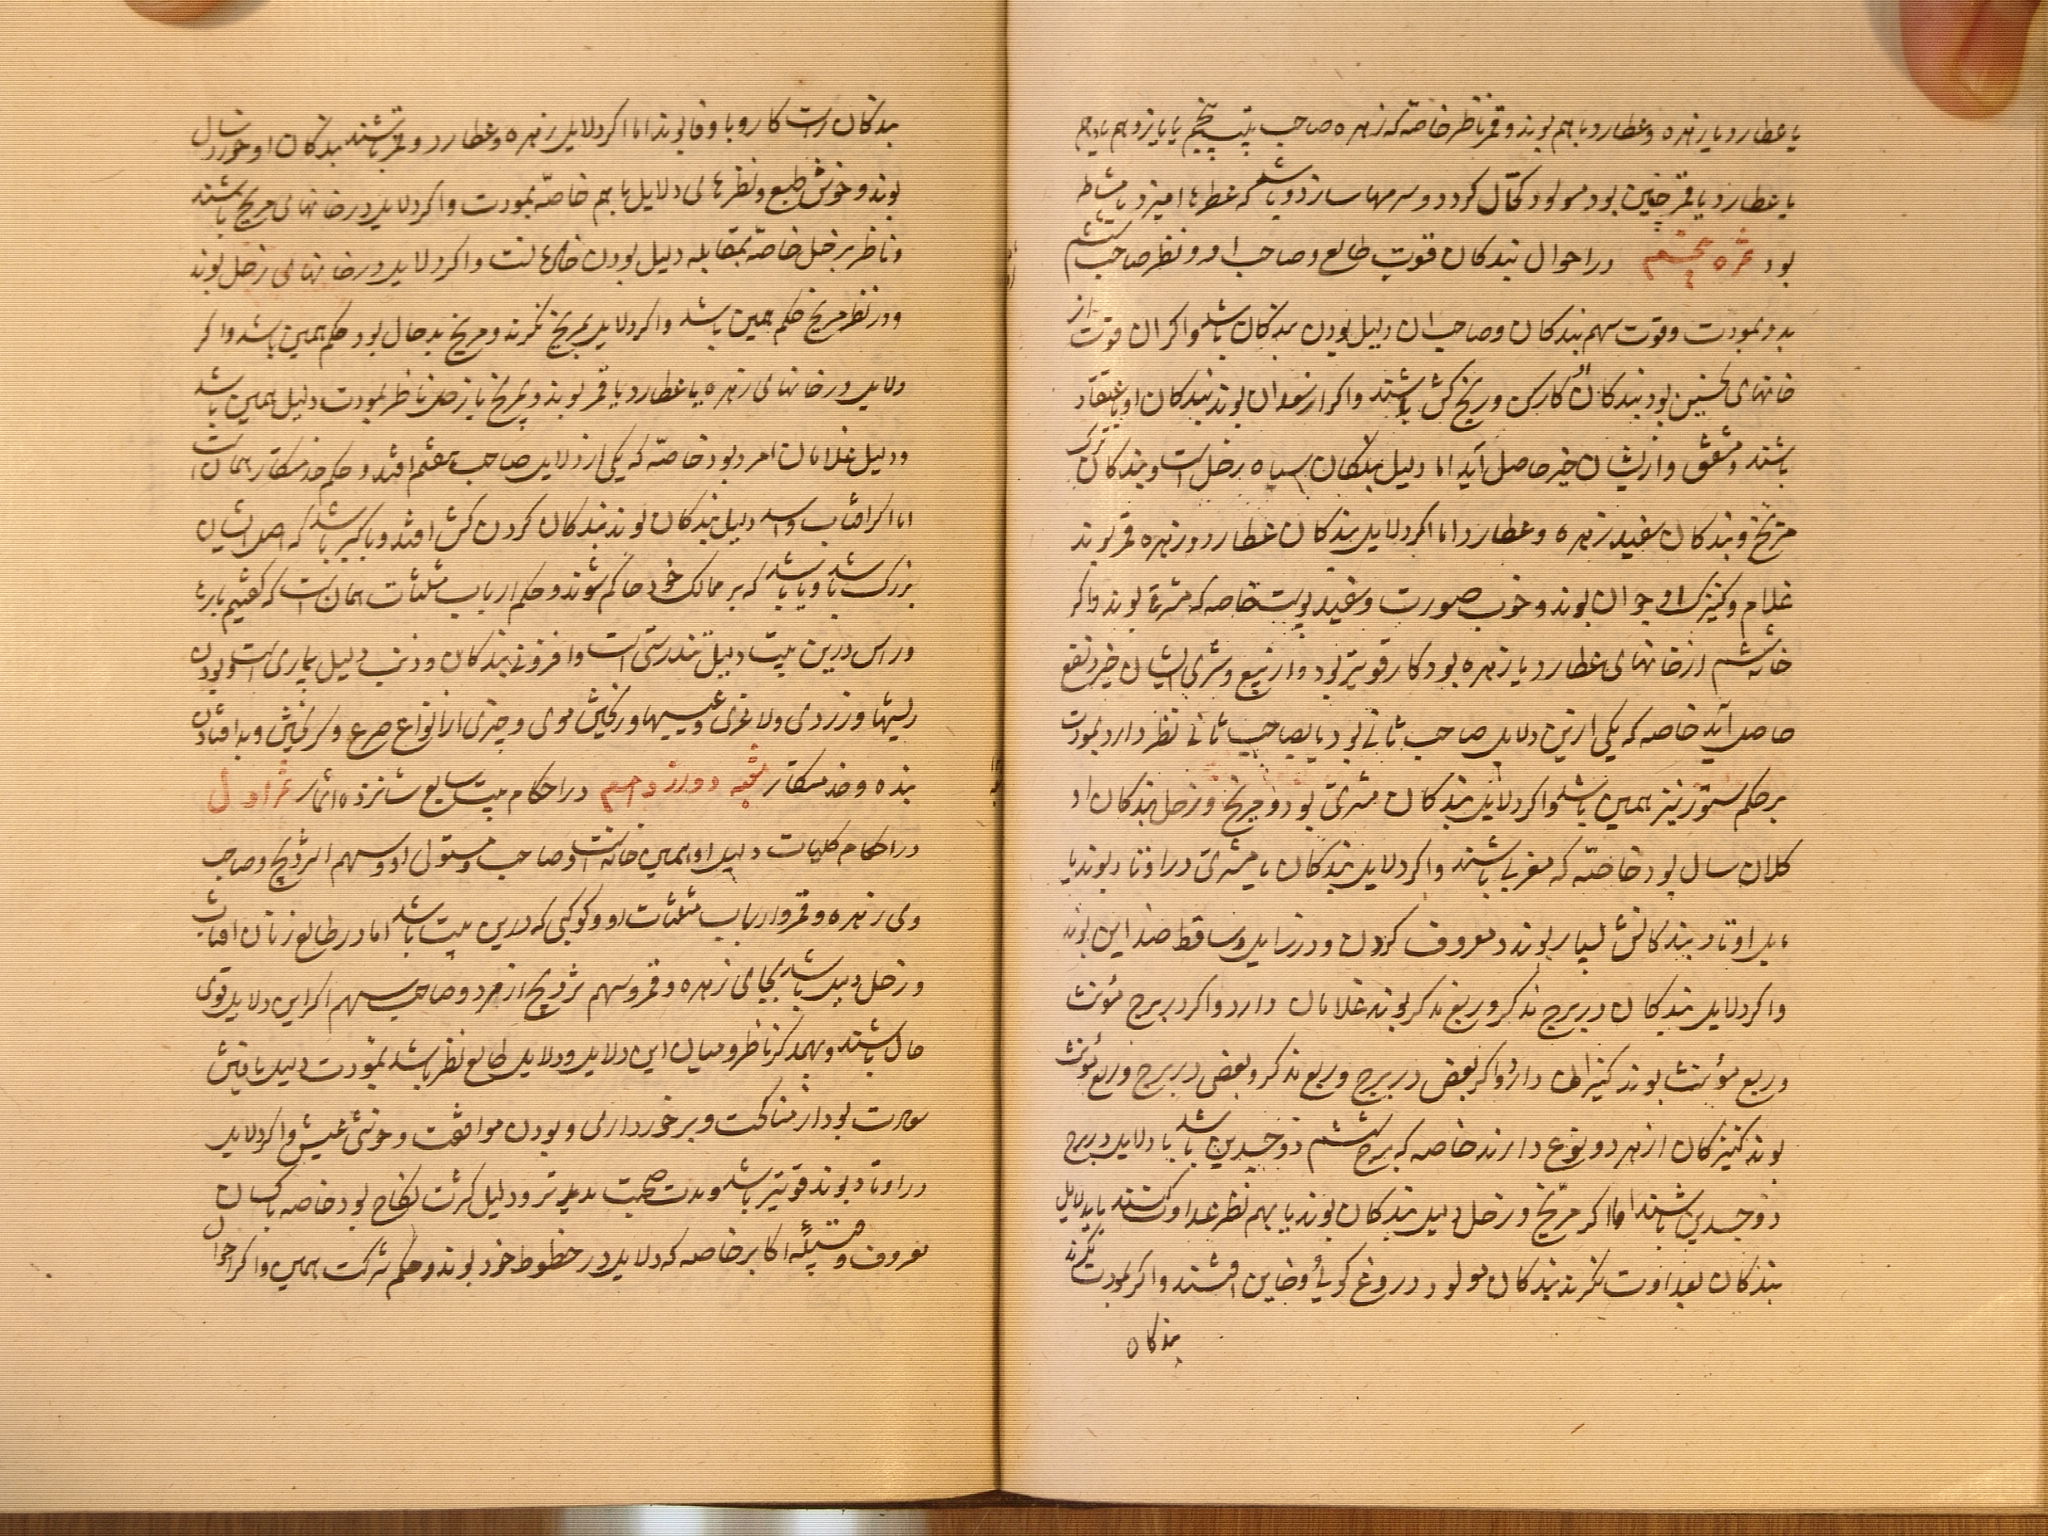 یا عطارد یا زهره و عطارد باهم بوند و قمر ناظر خاصّه که زهره صاحب بیت پنجم یا یازدهم یا دهم
یا عطارد یا قمر چنین بود مولود کحّال کردد و سرمها سازد و باشد که عطرها امیزد یا مشاطه
بود ثمره در احوال بندکان قوت طالع و صاحب او و نظر صاحب ششم
بدو بمودت و قوت سهم بندکان و صاحب ان دلیل بودن بندکان باشد و اکر ان قوت از
خانهای نحسین بود بندکان کارکن و رنج کش باشند و اکر از سعدان بوند بندکان او با اعتقاد
باشند و مشفق و ازیشان خیر حاصل آید اما دلیل بندکان سیاه زحل است و بندکان ترک
مریخ و بندکان سفید زهره و عطارد اما اکر دلایل بندکان عطارد و زهره و قمر بوند
غلام و کنیزک او جوان بوند و خوب صورت و سفید پوست خاصه که مشرقی بوند و اکر
خانه ششم از خانهای عطارد یا زهره بود کار قویتر بود و از بیع و شری ایشان خیر و نفع
حاصل آید خاصه که یکی ازین دلایل صاحب ثانی بود یا بصاحب ثانی نظر دارد بمودت
بر حکم ستور نیز همین باشد و اکر دلایل بندکان مشرقی بود و مریخ و زحل بندکان او
کلان سال بود خاصّه که مغربی باشند و اکر دلایل بندکان یا مشتری در اوتاد بوند یا
مایل اوتاد بندکانش بسیار بوند و معروف کردن و در زایل و ساقط ضد این بوند
و اکر دلایل بندکان در برج مذکر و ربع مذکر بوند غلامان دارد و اکر در برج مؤنث
و ربع مؤنث بوند کنیزکان دارد و اکر بعض در برج و ربع مذکر و بعض در برج و ربع مؤنث
بوند کنیزکان از هر دو نوع دارند خاصه که برج ششم ذوجسدین باشد یا دلایل در برج
ذوجسدین باشند اما اکر مریخ و زحل دلیل بندکان بوند یا بهم نظر عداوت کنند یا بدلایل
بندکان بعداوت نکرند بندکان مولود دروغ کوی و خاین افتند و اکر بمودت نکرند
بندکان
بندکان راست کار و با وفا بوند اما اکر دلایل زهره و عطارد و قمر باشند بندکان او خورد سال
بوند و خوش طبع و نظرهای دلایل با هم خاصّه بمودت و اکر دلایل در خانهای مریخ باشند
و ناظر بزحل خاصّه بمقابله دلیل بودن است و اکر دلایل در خانهای زحل بوند
و در نظر مریخ حکم همین باشد و اکر دلایل بمریخ نکرند و مریخ بد حال بود حکم همین باشد و اکر
دلایل در خانهای زهره یا عطارد یا قمر بوند و بمریخ یا زحل ناظر بمودت دلیل همین باشد
و دلیل غلامان امرد بود خاصّه که یکی از دلایل صاحب هفتم افتد و حکم خدمتکار همان است
اما اکر افتاب و اسد دلیل بندکان بوند بندکان کردن کش افتد و با کبر باشد که اصل ایشان
بزرک باشد و یا باشد که بر ممالک خود حاکم شوند و حکم ارباب مثلثات همان است که کفتیم بارها
و راس درین بیت دلیل تندرستی است و افزونی بندکان و ذنب دلیل بیماری است و بودن
ریشها و زردی و لاغری و عیبها و ریختن موی و چیزی از انواع صرع و کریختن و بد افتادن
بنده و خدمتکار شعبه دوازدهم در احکام بیت سابع شانزده اثمار ثمر اول
در احکام کلیات دلیل او همین خانه است و صاحب و مستولی او و سهم التزویج و صاحب
وی زهره و قمر و ارباب مثلثات او و کوکبی که درین بیت باشد اما در طالع زنان افتاب
و زحل دلیل باشد بجای زهره و قمر و سهم تزویج از مرد و صاحب سهم اکر این دلایل قوی
حال باشند و بهمدیکر ناظر و میان این دلایل و دلایل طالع نظر باشد بمودت دلیل یافتن
سعادت بود از مناکحت و برخورداری و بودن موافقت و خوشی عیش و اکر دلایل
در اوتاد بوند قویتر باشد و مدت صحبت مدیدتر و دلیل کثرت نکاح بود خاصه بکسان
معروف و اکابر خاصه که دلایل در حظوظ خود بوند و حکم شرکت همین و اکر احوال